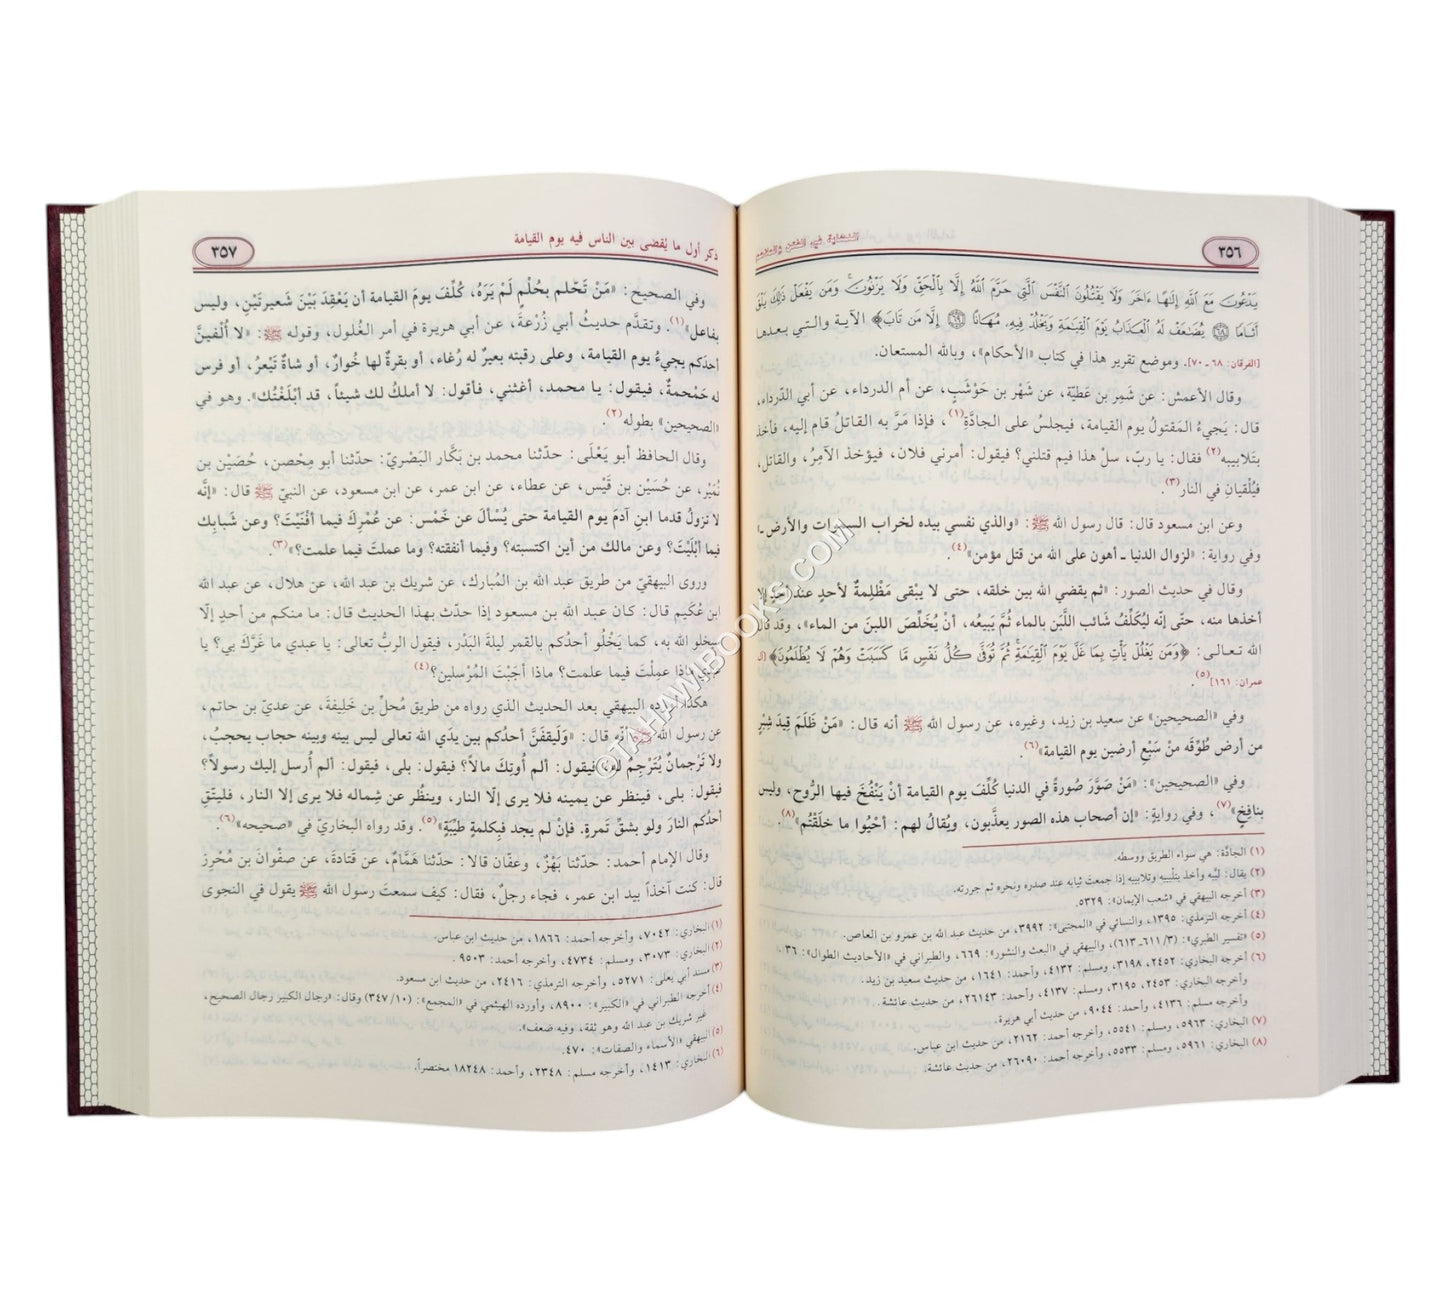 ٣٥٦
النهاية في الفتن والملاحم
يَدْعُونَ مَعَ اللَّهِ إِلَٰهًا ءَاخَرَ وَلَا يَقْتُلُونَ النَّفْسَ الَّتِي حَرَّمَ اللَّهُ إِلَّا بِالْحَقِّ وَلَا يَزْنُونَ وَمَن يَفْعَلْ ذَٰلِكَ يَلْقَ
أَثَامًا ﴿٦٨﴾ يُضَٰعَفْ لَهُ الْعَذَابُ يَوْمَ الْقِيَٰمَةِ وَيَخْلُدْ فِيهِ مُهَانًا ﴿٦٩﴾ إِلَّا مَن تَابَ﴾ الآية والتي بعدها
[الفرقان: ٦٨ ـ ٧٠]. وموضع تقرير هذا في كتاب «الأحكام»، وبالله المستعان.
وقال الأعمش: عن شَمِر بن عَطيّة، عن شَهْر بن حَوْشَبٍ، عن أم الدرداء، عن أبي الدّرداء،
قال: يَجيءُ المَقتولُ يوم القيامة، فيجلسُ على الجادَّةِ(١)، فإذا مَرَّ به القاتلُ قام إليه، فأخذ
بتَلابيبه(٢) فقال: يا ربّ، سلْ هذا فيم قتلني؟ فيقول: أمرني فلان، فيؤخذ الآمِرُ، والقاتل،
فيُلْقيانِ في النار(٣).
وعن ابن مسعود قال: قال رسول الله ﷺ: «والذي نفسي بيده لخراب السموات والأرض ـ
وفي رواية: «لزوال الدنيا ـ أهون على الله من قتل مؤمن»(٤).
وقال في حديث الصور: «ثم يقضي الله بين خلقه، حتى لا يبْقى مَظْلِمةٌ لأحدٍ عند أحدٍ إلا
أخذها منه، حتّى إنّه ليُكَلَّفُ شائب اللَّبَن بالماء ثُمَّ يَبيعُه، أنْ يُخَلِّصَ اللبنَ من الماء»، وقد قال
الله تعالى: ﴿وَمَن يَغْلُلْ يَأْتِ بِمَا غَلَّ يَوْمَ الْقِيَٰمَةِ ثُمَّ تُوَفَّىٰ كُلُّ نَفْسٍ مَّا كَسَبَتْ وَهُمْ لَا يُظْلَمُونَ﴾ [آل
عمران: ١٦١](٥).
وفي «الصحيحين» عن سعيد بن زيد، وغيره، عن رسول الله ﷺ أنه قال: «مَنْ ظَلَمَ قِيدَ شِبْرٍ
من أرض طُوِّقَه مِنْ سَبْعِ أرضين يوم القيامة»(٦).
وفي «الصحيحين»: «مَنْ صَوَّرَ صُورةً في الدنيا كُلِّفَ يوم القيامة أنْ يَنْفُخَ فيها الرُّوح، وليس
بنافِخٍ»(٧)، وفي روايةٍ: «إن أصحاب هذه الصور يعذَّبون، ويُقالُ لهم: أحْيُوا ما خلَقْتُم»(٨).
(١) الجادَّة: هي سواء الطريق ووسطه.
(٢) يقال: لبَّبه وأخذ بتلبيبه وتلابيبه إذا جمعت ثيابه عند صدره ونحره ثم جررته.
(٣) أخرجه البيهقي في «شعب الإيمان»: ٥٣٢٩.
(٤) أخرجه الترمذي: ١٣٩٥، والنسائي في «المجتبى»: ٣٩٩٢، من حديث عبد الله بن عمَرو بن العاص.
(٥) «تفسير الطبري»: (٣/ ٦١١ـ٦١٣)، والبيهقي في «البعث والنشور»: ٦٦٩، والطبراني في «الأحاديث الطوال»: ٣٦.
(٦) أخرجه البخاري: ٢٤٥٢، ٣١٩٨، ومسلم: ٤١٣٢، وأحمد: ١٦٤١، من حديث سعيد بن زيد.
وأخرجه البخاري: ٢٤٥٣، ٣١٩٥، ومسلم: ٤١٣٧، وأحمد: ٢٦١٤٣، من حديث عائشة.
وأخرجه مسلم: ٤١٣٦، وأحمد: ٩٠٤٤، من حديث أبي هريرة.
(٧) البخاري: ٥٩٦٣، ومسلم: ٥٥٤١، وأخرجه أحمد: ٢١٦٢، من حديث ابن عباس.
(٨) البخاري: ٥٩٦١، ومسلم: ٥٥٣٣، وأخرجه أحمد: ٢٦٠٩٠، من حديث عائشة.
ذكر أول ما يُقضى بين الناس فيه يوم القيامة
٣٥٧
وفي الصحيح: «مَنْ تَحْلم بحُلْمٍ لَمْ يَرَهُ، كُلِّف يومَ القيامة أن يَعْقِدَ بَيْنَ شَعيرتَيْنِ، وليس
بفاعل»(١). وتقدَّم حديثُ أبي زُرْعةَ، عن أبي هريرة في أمر الغُلول، وقوله ﷺ: «لا أُلْفينَّ
أحدَكم يجيءُ يوم القيامة، وعلى رقبته بعيرٌ له رُغاء، أو بقرةٌ لها خُوارٌ، أو شاةٌ تَيْعرُ، أو فرس
له حَمْحمةٌ، فيقول: يا محمد، أغثني، فأقول: لا أملكُ لك شيئاً، قد أبْلَغْتُك». وهو في
«الصحيحين» بطوله(٢).
وقال الحافظ أبو يَعْلَى: حدّثنا محمد بن بَكَّار البَصْريّ: حدّثنا أبو مِحْصن، حُصَيْن بن
نُمَيْر، عن حُسَيْن بن قَيْس، عن عطاء، عن ابن عمر، عن ابن مسعود، عن النبيّ ﷺ قال: «إنَّه
لا تزولُ قدما ابنِ آدمَ يوم القيامة حتى يُسْألَ عن خَمْس: عن عُمْرِكَ فيما أفْنَيْتَ؟ وعن شَبابِكَ
فيما أبْلَيْتَ؟ وعن مالك من أين اكتسبته؟ وفيما أنفقته؟ وما عملتَ فيما علمت؟»(٣).
وروى البيهقي من طريق عبد الله بن المُبارك، عن شريك بن عبد الله، عن هلال، عن عبد الله
ابن عُكَيم قال: كان عبد الله بن مسعود إذا حدّث بهذا الحديث قال: ما منكم من أحدٍ إلّا
سيخلو الله به، كما يَخْلُو أحدُكم بالقمر ليلةَ البَدْر، فيقول الربُّ تعالى: يا عبدي ما غَرَّكَ بي؟ يا
عبدي ماذا عمِلْتَ فيما علمت؟ ماذا أجَبْتَ المُرْسلين؟(٤)
هكذا أورده البيهقي بعد الحديث الذي رواه من طريق مُحلِّ بن خَلِيفَة، عن عديّ بن حاتم،
عن رسول الله ﷺ أنّه قال: «وَلَيقفَنَّ أحدُكم بين يدَي الله تعالى ليس بينه وبينه حجاب يحجبُ،
ولا تَرْجمانٌ يُتَرْجِمُ له، فيقول: ألم أُوتِكَ مالاً؟ فيقول: بلى، فيقول: ألم أُرسل إليك رسولاً؟
فيقول: بلى، فينظر عن يمينه فلا يرى إلّا النار، وينظُر عن شِماله فلا يرى إلا النار، فليتَّقِ
أحدُكم النارَ ولو بشقِّ تَمرةٍ. فإنْ لم يجد فبِكلمةٍ طَيِّبَةٍ»(٥). وقد رواه البخاريّ في «صحيحه»(٦).
وقال الإمام أحمد: حدّثنا بَهْزٌ، وعفّان قالا: حدّثنا هَمَّامٌ، عن قَتادَةَ، عن صفْوانَ بن مُحْرِزٍ
قال: كنت آخذاً بيد ابن عمر، فجاء رجلٌ، فقال: كيف سمعتَ رسول الله ﷺ يقول في النجوى
(١) البخاري: ٧٠٤٢، وأخرجه أحمد: ١٨٦٦، من حديث ابن عباس.
(٢) البخاري: ٣٠٧٣، ومسلم: ٤٧٣٤، وأخرجه أحمد: ٩٥٠٣.
(٣) مسند أبي يعلى: ٥٢٧١، وأخرجه الترمذي: ٢٤١٦، من حديث ابن مسعود.
(٤) أخرجه الطبراني في «الكبير»: ٨٩٠٠، وأورده الهيثمي في «المجمع»: (١٠/ ٣٤٧) وقال: «رجال الكبير رجال الصحيح،
غير شريك بن عبد الله وهو ثقة، وفيه ضعف».
(٥) البيهقي «الأسماء والصفات»: ٤٧٠.
(٦) البخاري: ١٤١٣، وأخرجه مسلم: ٢٣٤٨، وأحمد: ١٨٢٤٨ مختصراً.
©TAHAWIBOOKS.COM